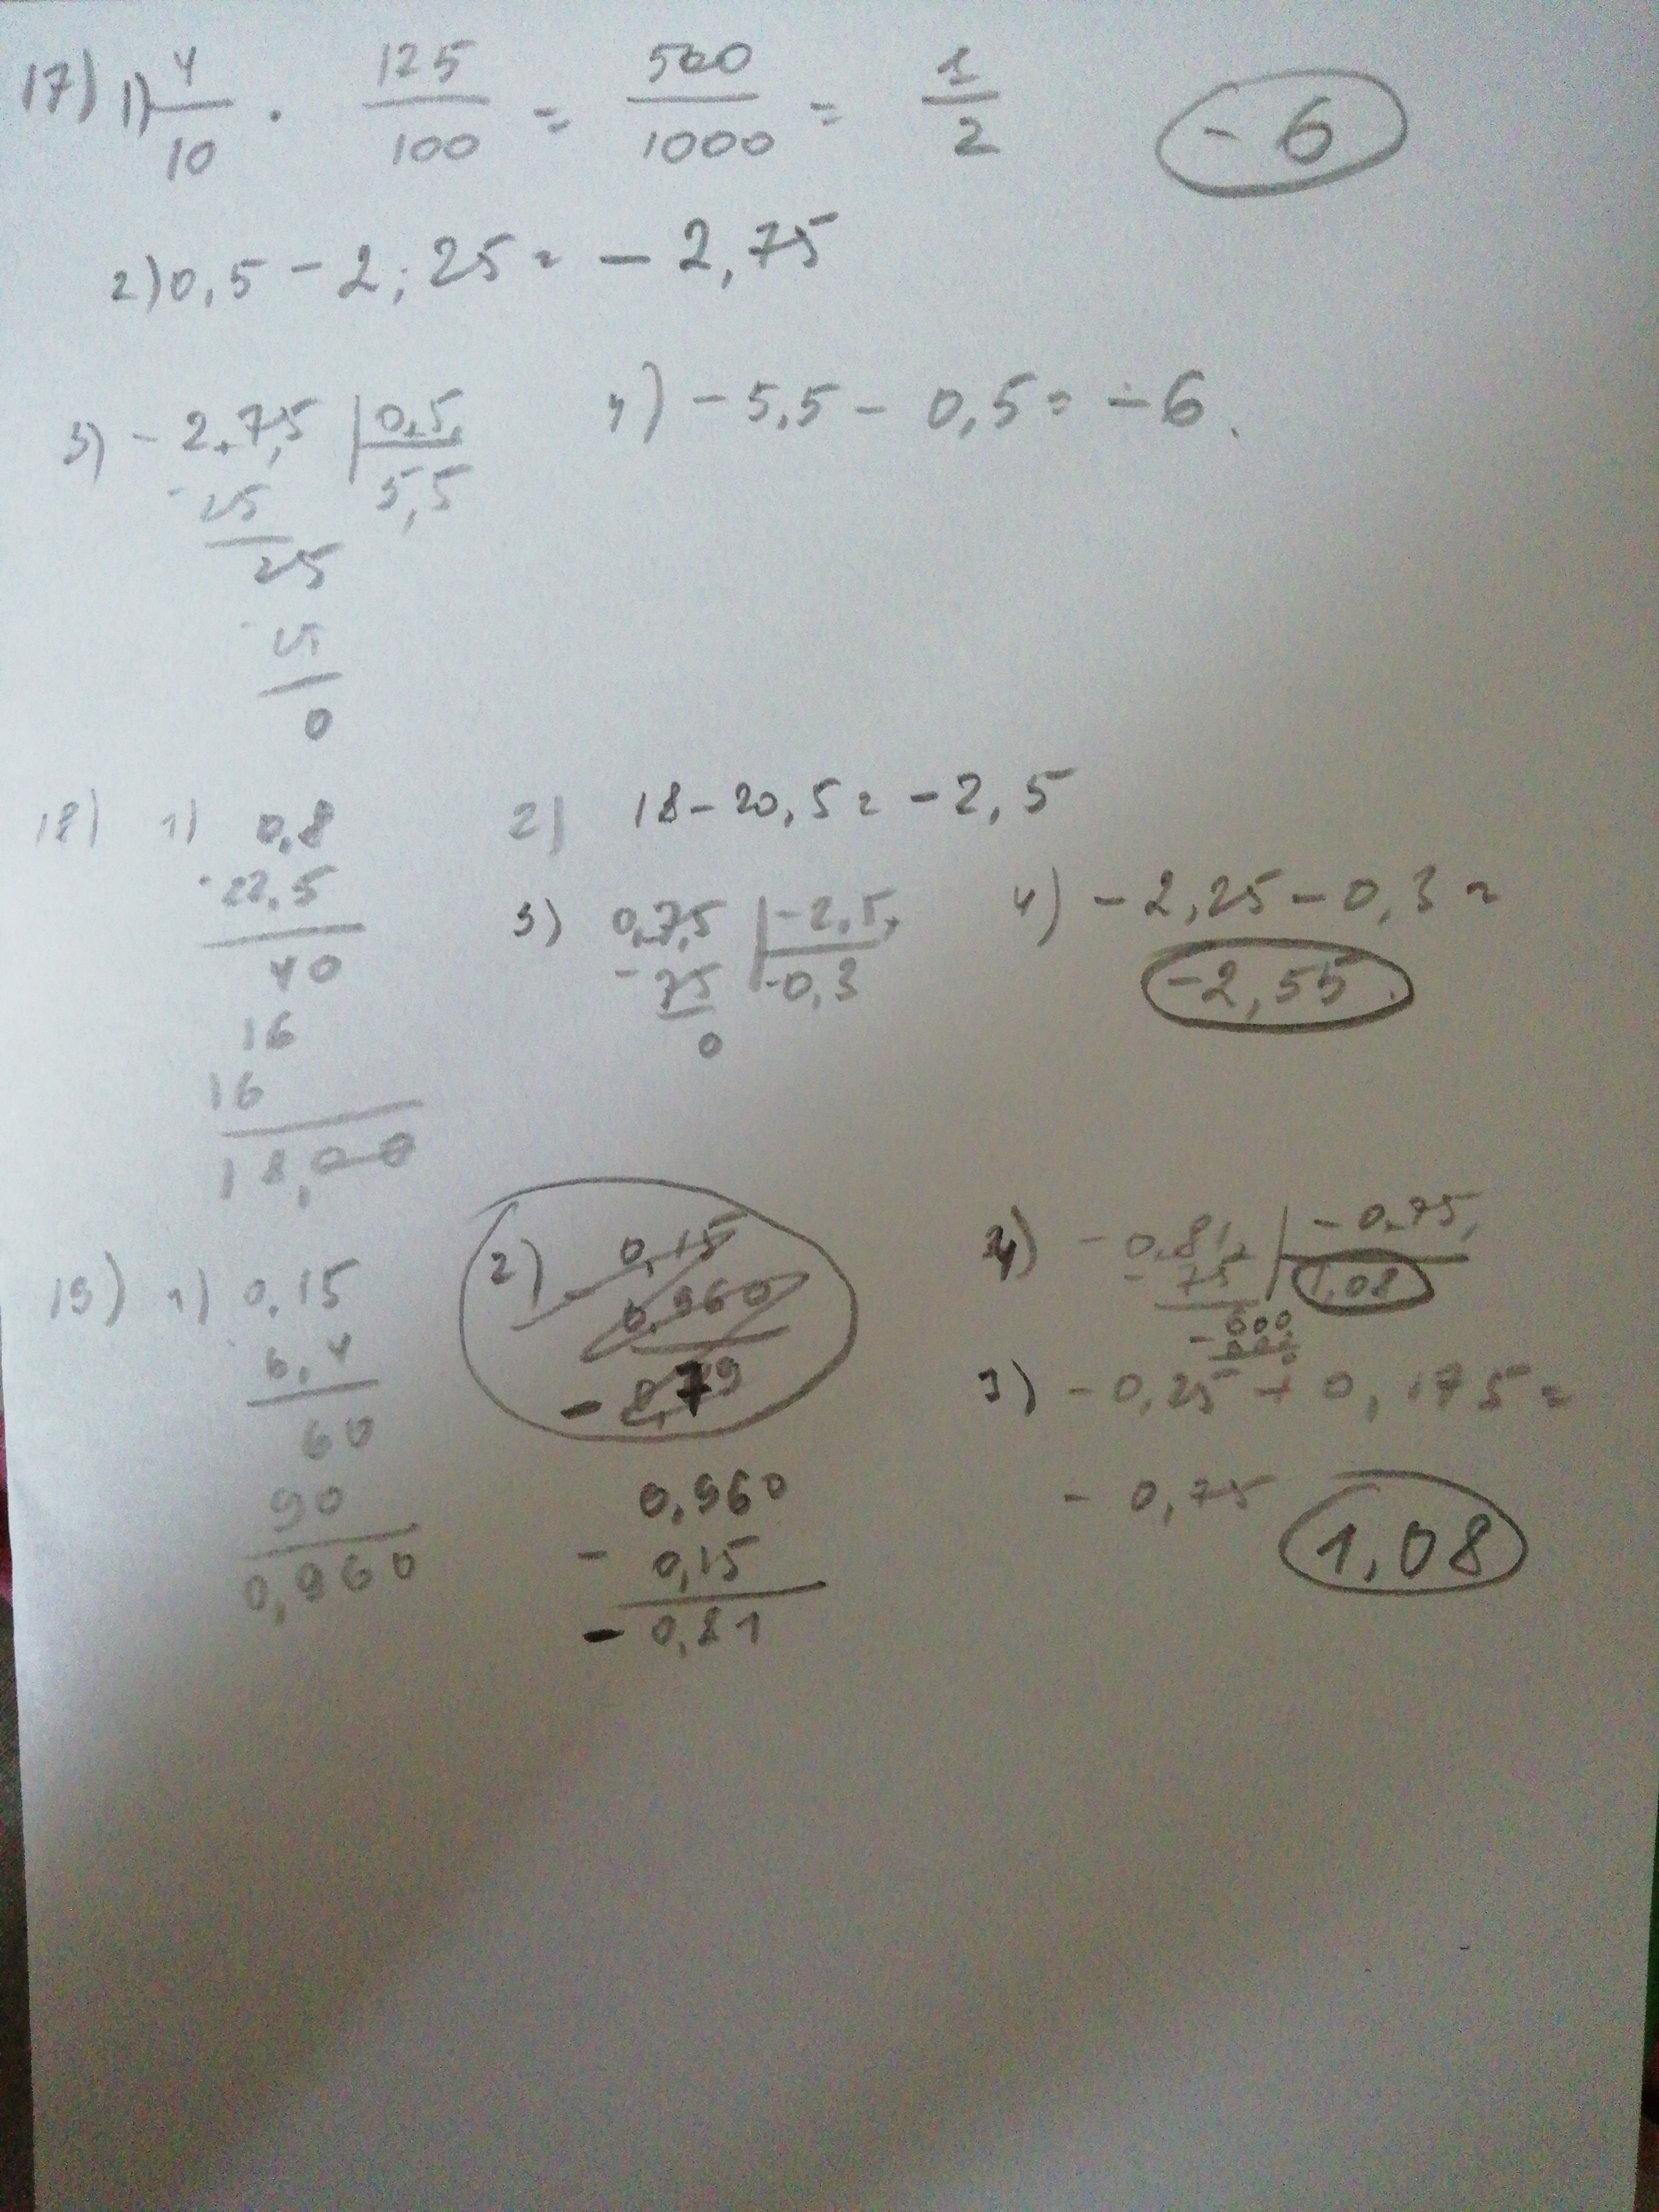 17) 1) 4/10 · 125/100 = 500/1000 = 1/2 -6
2) 0,5 - 2,25 = -2,75
3) -2,7,5 | 0,5,
-25 5,5
25
-25
0
4) -5,5 - 0,5 = -6.
18) 1) 0,8
22,5
40
16
16
18,00
2) 18 - 20,5 = -2,5
3) 0,7,5 | -2,5,
-75 -0,3
0
4) -2,25 - 0,3 =
-2,55.
19) 1) 0,15
6,4
60
90
0,960
2) 0,15
0,960
- 8,79
0,960
- 0,15
- 0,81
4) -0,81, | -0,75,
-75 1,08
600
-600
0
3) -0,25 + 0,175 =
-0,75 1,08